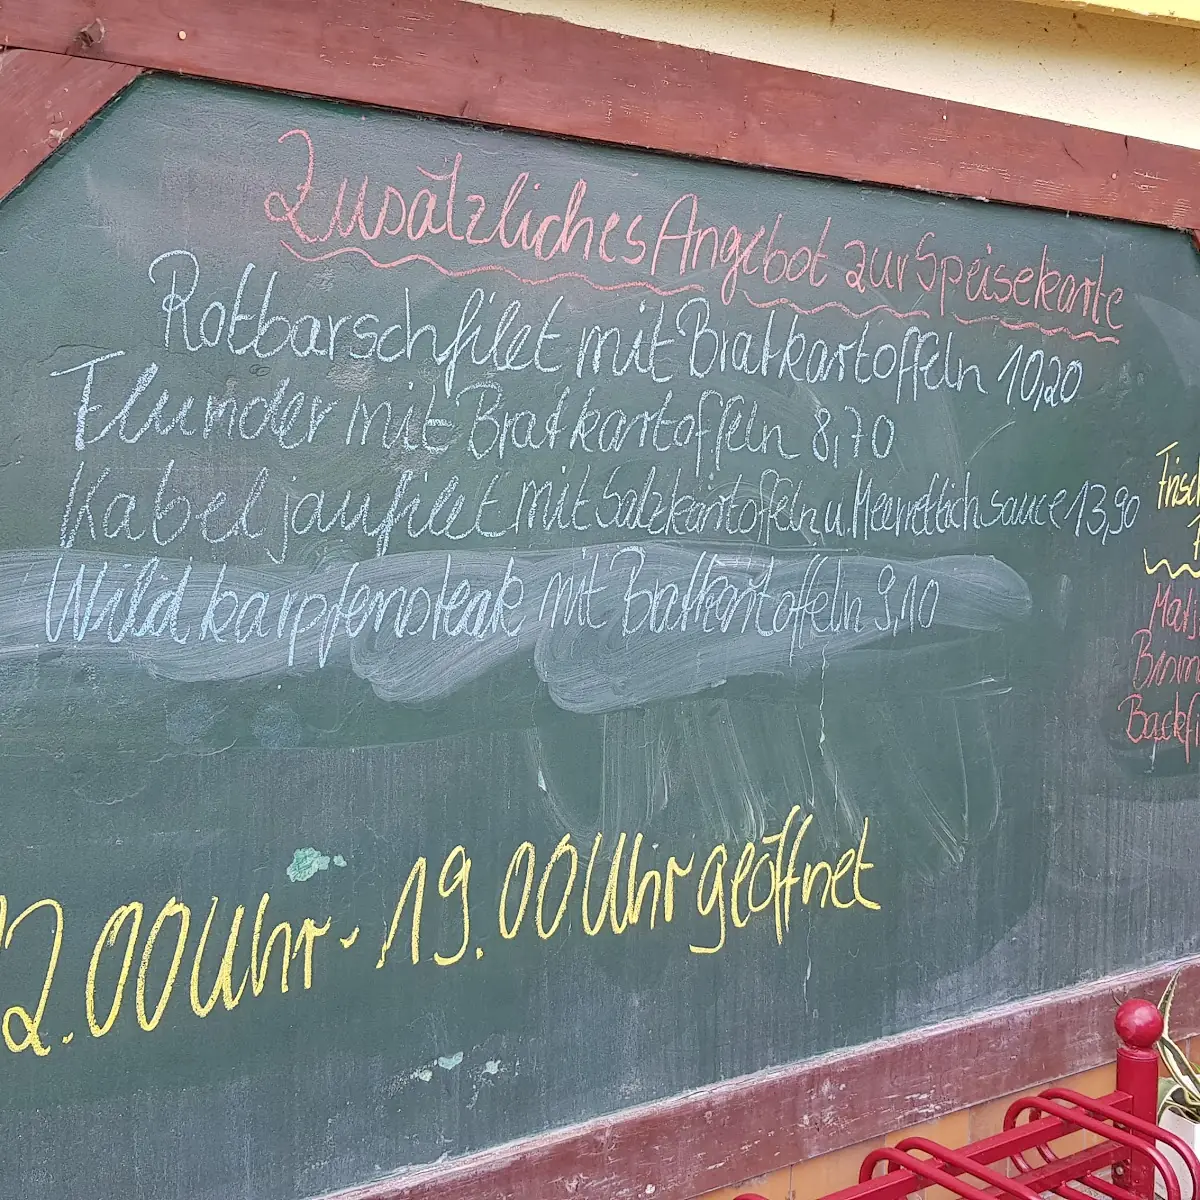 Zusätzliches Angebot zur Speisekarte
Rotbarschfilet mit Bratkartoffeln 10,20
Flunder mit Bratkartoffeln 8,70
Kabeljaufilet mit Salzkartoffeln u. Meerrettichsauce 13,90
Wildkarpfensteak mit Bratkartoffeln 9,10
2.00 Uhr - 19.00 Uhr geöffnet
Frisch